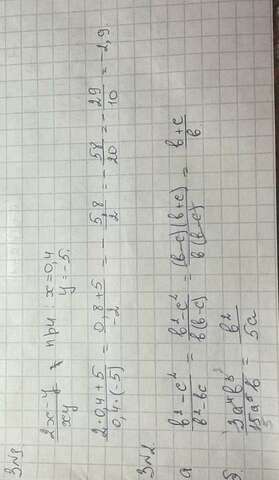 ЗN3.
(2x-y)/(xy) при: x=0,4
y=-5.
(2·0,4+5)/(0,4·(-5)) = (0,8+5)/(-2) = -5,8/2 = -58/20 = -29/10 = -2,9.
ЗN2.
а (b²-c²)/(b²-bc) = (b²-c²)/(b(b-c)) = ((b-c)(b+c))/(b(b-c)) = (b+c)/b
б. (3a⁴b³)/(15a⁵b) = b²/(5a)
5